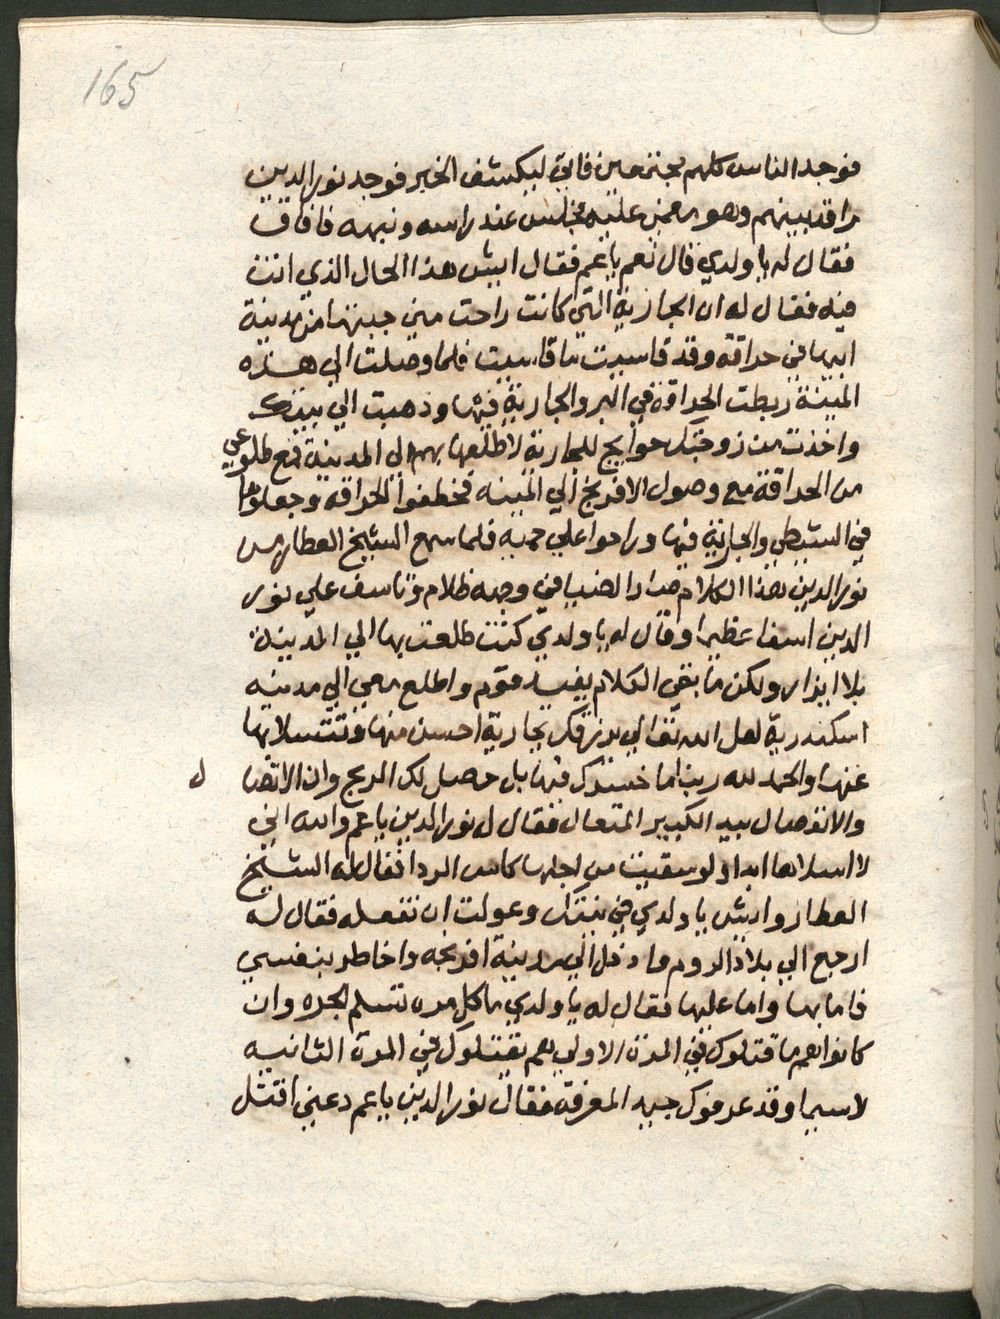 165
فوجد الناس كلهم مجتمعين فاتي ليكشف الخبر فوجد نور الدين
راقد بينهم وهو مغمي عليه فجلس عند راسه ونبهه فافاق
فقال له يا ولدي قال نعم يا عم فقال ايش هذا الحال الذي انت
فيه فقال له ان الجارية التي كانت راحت مني جبتها من مدينة
ابيها في حراقة وقد قاسيت ما قاسيت فلما وصلت الي هذه
المينة ربطت الحراقة في البر والجارية فيها وذهبت الي بيتك
واخذت من زوجتك حوايج للجارية لاطلعها بهم الي المدينة فمع طلوعي
من الحراقة مع وصول الافرنج الي المينه فخطفوا الحراقه وجعلوها
في الشيطي والجارية فيها وراحوا علي حمية فلما سمع الشيخ العطار من
نور الدين هذا الكلام صار الضيا في وجهه ظلام وتاسف علي نور
الدين اسفا عظيما وقال له يا ولدي كنت طلعت بها الي المدينة
بلا ايزار ولكن ما بقي الكلام يفيد فقوم واطلع معي الي مدينه
اسكندرية لعل الله تعالي يرزقك بجارية احسن منها فتتسلا بها
عنها والحمد لله رب ما خسرك فيها بل حصل لك الربح وان الاتصا
ل
والانفصال بيد الكبير المتعال فقال له نور الدين يا عم والله اني
لا اسلاها ابدا ولو سقيت من اجلها كاس الردا فقال له الشيخ
العطار وايش يا ولدي في نيتك وعولت ان تفعله فقال له
ارجع الي بلاد الروم وادخل الي مدينة افرنجه واخاطر بنفسي
فاما بها واما عليها فقال له يا ولدي ما كل مره تسلم الجره وان
كانوا هم ما قتلوك في المرة الاولي هم يقتلوك في المرة الثانيه
لاسيما وقد عرفوك جيد المعرفة فقال نور الدين يا عم دعني اقتتل